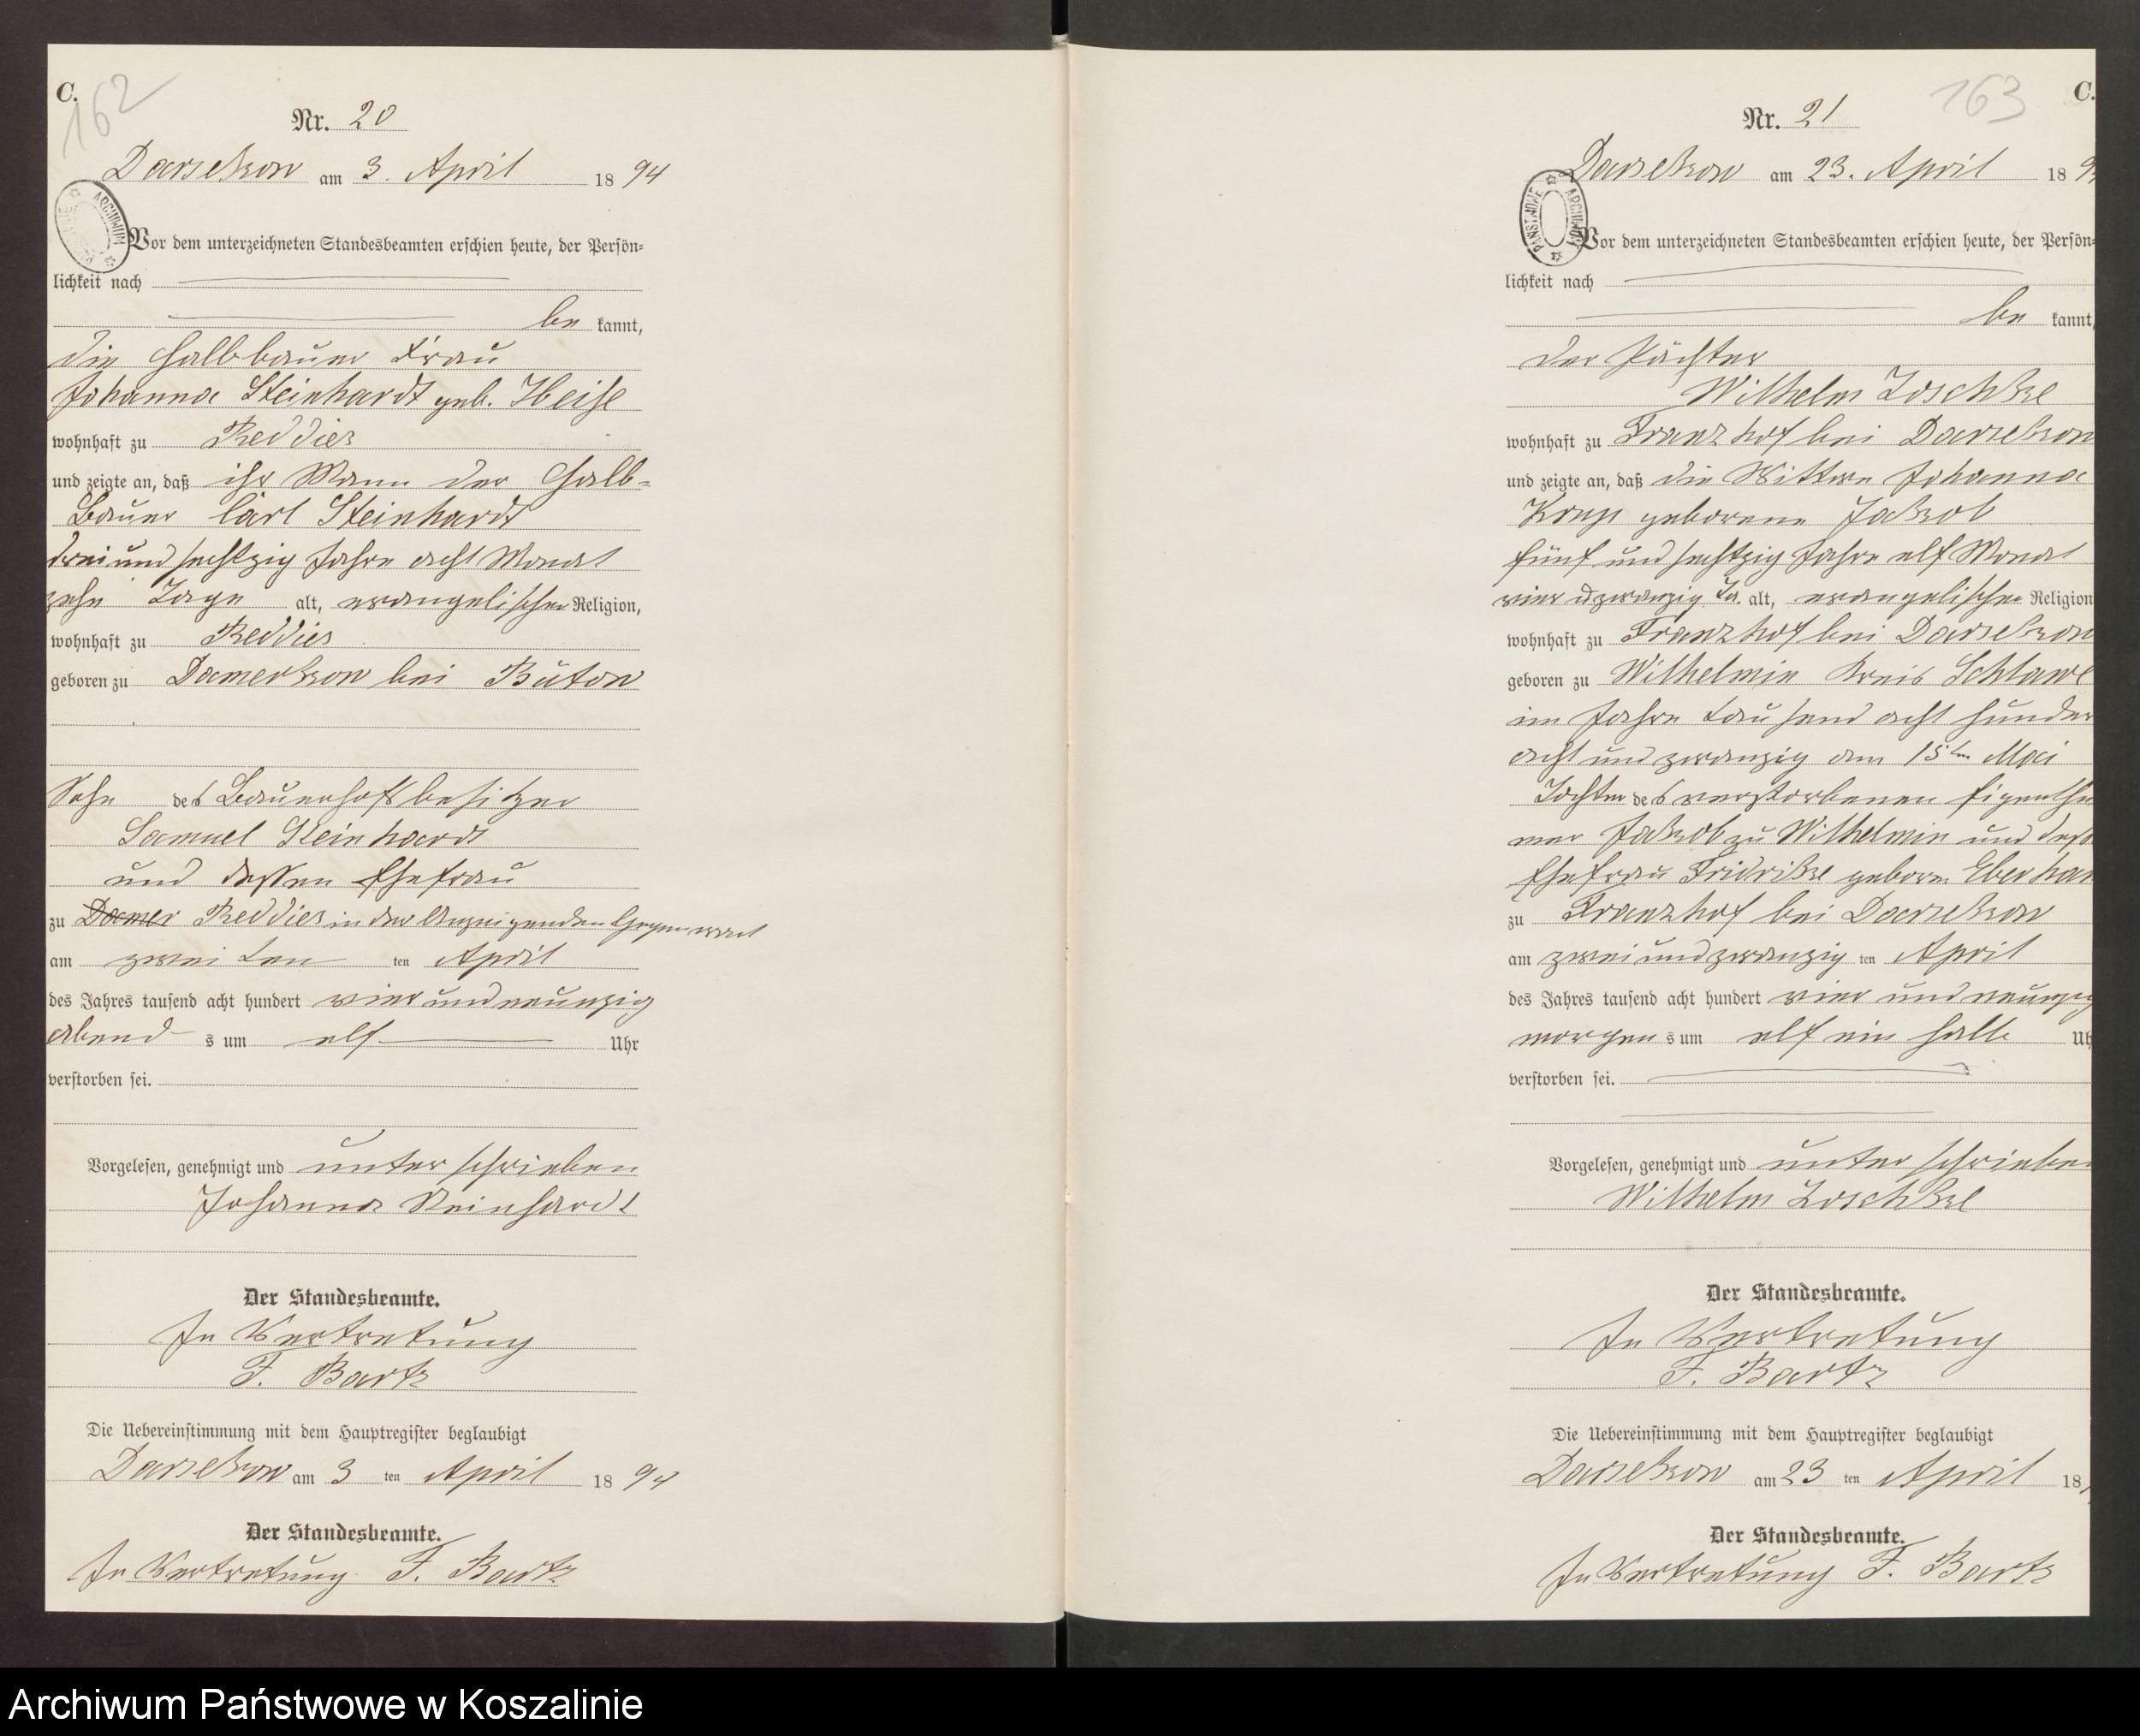 C.
162
Nr. 20
Darsekow am 3. April 18 94
Vor dem unterzeichneten Standesbeamten erschien heute, der Persön-
lichkeit nach
be kannt,
die Halbbauer Frau
Johanna Steinhardt geb. Heise
wohnhaft zu Reddies
und zeigte an, daß ihr Mann der Halb-
Bauer Carl Steinhardt
drei und sechtzig Jahre acht Monat
zehn Tage alt, evangelischer Religion,
wohnhaft zu Reddies
geboren zu Damerkow bei Bütow
Sohn des Bauerhofsbesitzer
Samuel Steinhardt
und dessen Ehefrau
zu Damer Reddies in der Anzeigenden Gegenwart
am zweiten ten April
des Jahres tausend acht hundert vier und neunzig
abend s um elf Uhr
verstorben sei.
Vorgelesen, genehmigt und unterschrieben
Johanna Steinhardt
Der Standesbeamte.
In Vertretung
F. Bartz
Die Uebereinstimmung mit dem Hauptregister beglaubigt
Darsekow am 3 ten April 18 94
Der Standesbeamte.
In Vertretung F. Bartz
163
C.
Nr. 21
Darsekow am 23. April 18 9
PAŃSTWOWE ARCHIWUM
Vor dem unterzeichneten Standesbeamten erschien heute, der Persön-
lichkeit nach
be kannt,
der Pächter
Wilhelm Zoschke
wohnhaft zu Franzhof bei Darsekow
und zeigte an, daß die Wittwe Johanna
geborene Jakob
fünf und sechtzig Jahre elf Monat
vier u zwanzig Ta. alt, evangelischer Religion
wohnhaft zu Franzhof bei Darsekow
geboren zu Wilhelmin Kreis Schlawe
im Jahre tausend acht hunder
acht und zwanzig am 15ten Mai
Tochter des verstorbenen Eigenthü
mer Jakob zu Wilhelmin und dess
Ehefrau Fridrikke geboren Eberhar
zu Franzhof bei Darsekow
am zwei und zwanzig ten April
des Jahres tausend acht hundert vier und neunzig
morgen s um elf ein halb Uh
verstorben sei.
Vorgelesen, genehmigt und unterschrieben
Wilhelm Zoschke
Der Standesbeamte.
In Vertretung
F. Bartz
Die Uebereinstimmung mit dem Hauptregister beglaubigt
Darsekow am 23 ten April 18
Der Standesbeamte.
In Vertretung F. Bartz
Archiwum Państwowe w Koszalinie